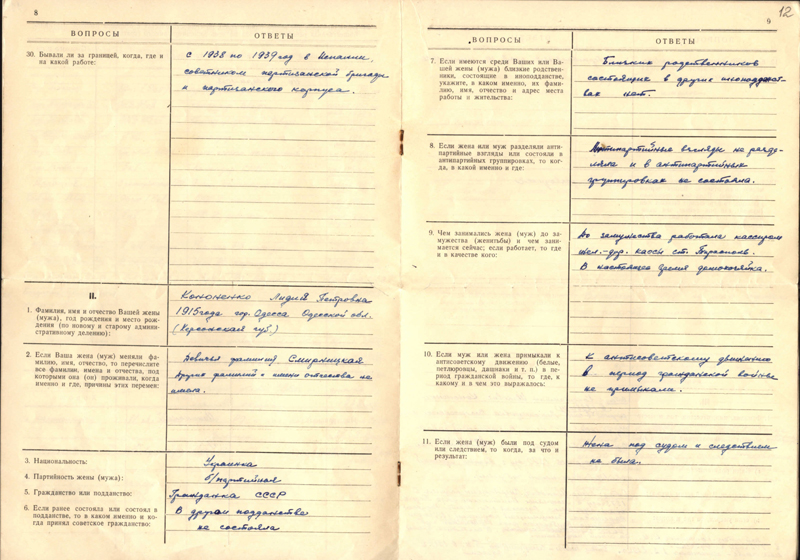 8
ВОПРОСЫ
ОТВЕТЫ
30. Бывали ли за границей, когда, где и
на какой работе:
с 1938 по 1939 год в Испании.
советником партизанской бригады
и партизанского корпуса.
II.
1. Фамилия, имя и отчество Вашей жены
(мужа), год рождения и место рож-
дения (по новому и старому админи-
стративному делению):
Кононенко Лидия Петровна
1915 года гор. Одесса Одесской обл.
(Херсонская губ.)
2. Если Ваша жена (муж) меняли фа-
милию, имя, отчество, то перечислите
все фамилии, имена и отчества, под
которыми она (он) проживали, когда
именно и где, причины этих перемен:
Девичья фамилия Смирницкая
других фамилий и имени отчества не
имела.
3. Национальность:
Украинка
4. Партийность жены (мужа):
б/партийная
5. Гражданство или подданство:
Гражданка СССР
6. Если ранее состояла или состоял в
подданстве, то в каком именно и ко-
гда принял советское гражданство:
В другом подданстве
не состояла
12
9
ВОПРОСЫ
ОТВЕТЫ
7. Если имеются среди Ваших или Ва-
шей жены (мужа) близкие родствен-
ники, состоящие в иноподданстве,
укажите, в каком именно, их фами-
лию, имя, отчество и адрес места
работы и жительства:
Близких родственников
состоящих в других иноподданст-
вах нет.
8. Если жена или муж разделяли анти-
партийные взгляды или состояли в
антипартийных группировках, то ко-
гда, в какой именно и где:
Антипартийные взгляды не разде-
ляла и в антипартийных
группировках не состояла.
9. Чем занимались жена (муж) до за-
мужества (женитьбы) и чем зани-
мается сейчас; если работает, то где
и в качестве кого:
До замужества работала кассиром
жел.-дор. кассы ст.
В настоящее время домохозяйка.
10. Если муж или жена примыкали к
антисоветскому движению (белые,
петлюровцы, дашнаки и т. п.) в пе-
риод гражданской войны, то где, к
какому и в чем это выражалось:
К антисоветскому движению
в период гражданской войны
не примыкали.
11. Если жена (муж) были под судом
или следствием, то когда, за что и
результат:
Жена под судом и следствием
не была.